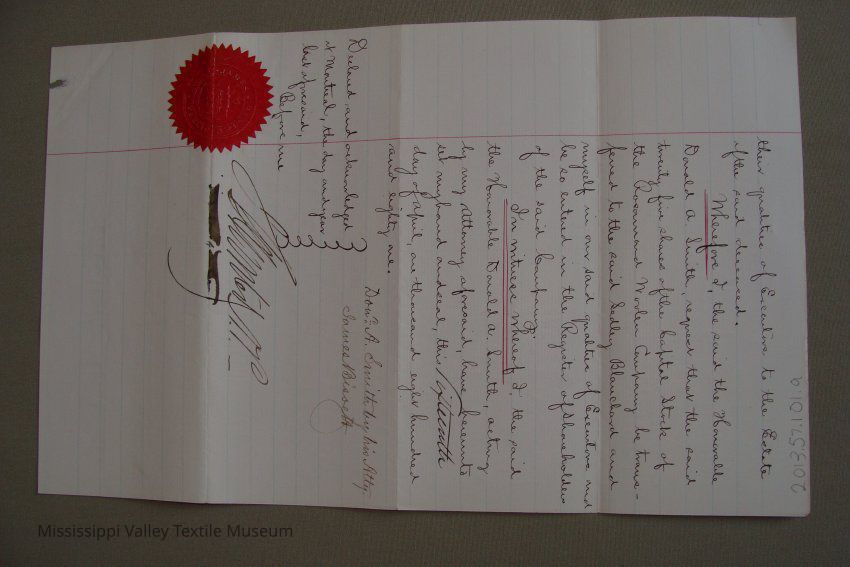 their qualities of Executors to the Estate
of the said deceased.
Wherefore I, the said the Honorable
Donald A. Smith, request that the said
twenty five shares of the Capital Stock of
the Rosamond Woolen Company be trans-
ferred to the said Sedley Blanchard and
myself in our said qualities of Executors and
be so entered in the Register of Shareholders
of the said Company.
In witness whereof I, the said
the Honorable Donald A. Smith, acting
by my Attorney aforesaid, have hereunto
set my hand and seal, this Sixteenth
day of April, one thousand eight hundred
and eighty one.
Don. A. Smith by his Atty
James
Declared and acknowledged
at Montreal, the day and year
last aforesaid,
Before me
2013.57.101a
Mississippi Valley Textile Museum